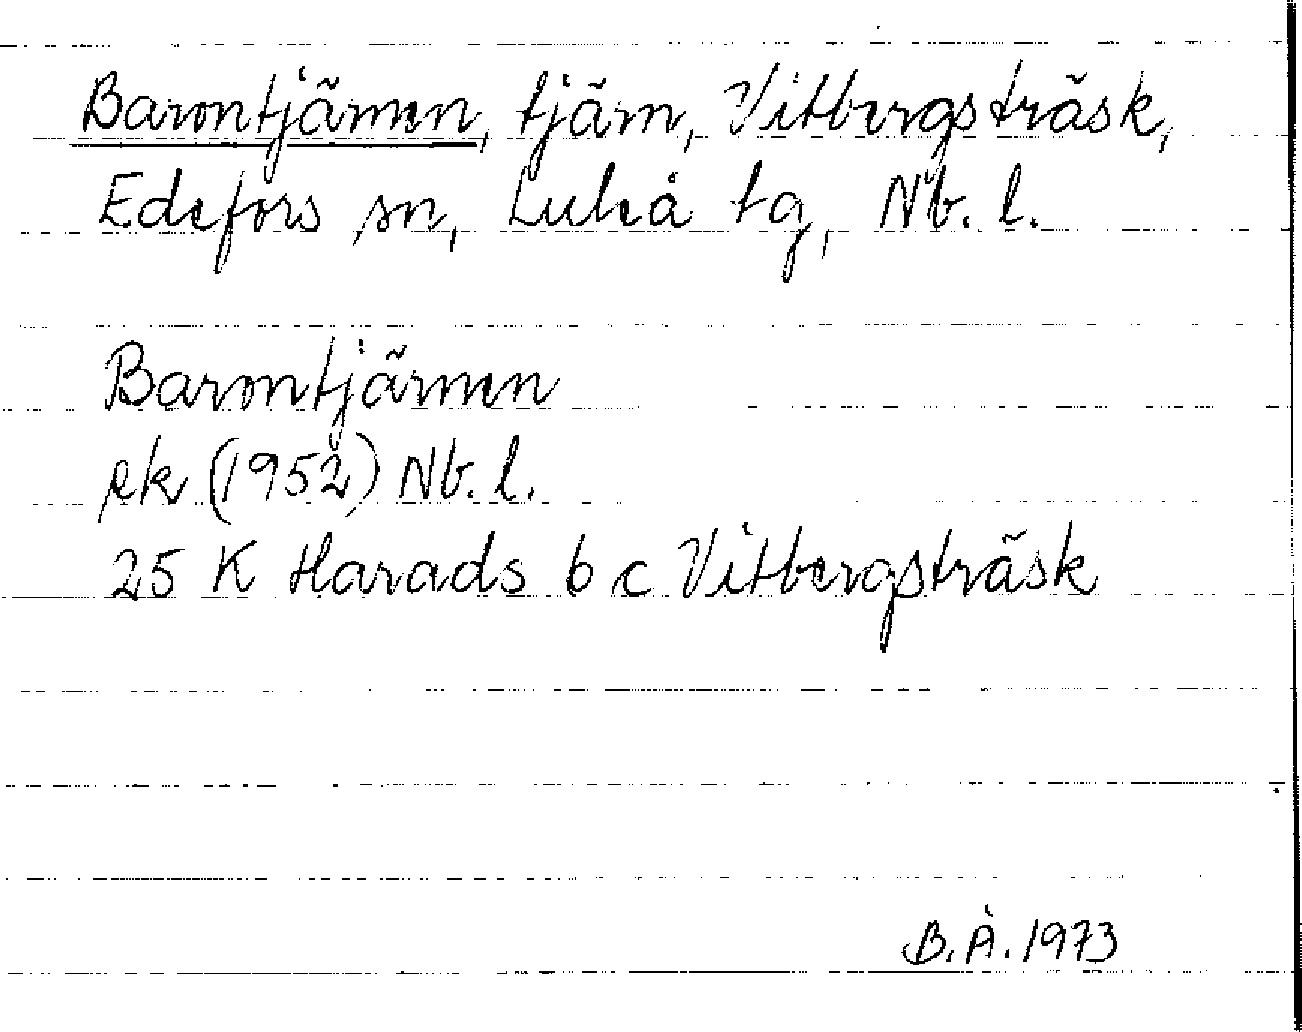 Barontjärnen, tjärn, Vitbergsträsk,
Edefors sn, Luleå tg, Nb. l.
Barontjärnen
ek (1952) Nb. l.
25 K Harads 6 c Vitbergsträsk
B.Å. 1973